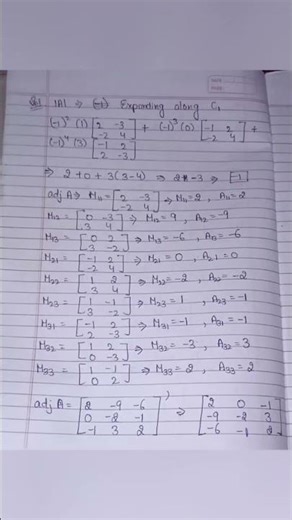 Q.1 |A| ⇒ Expanding along C₁
(-1)² (1) [2 -3 / -2 4] + (-1)³ (0) [-1 2 / -2 4] +
(-1)⁴ (3) [-1 2 / 2 -3]
⇒ 2+0+3(3-4) ⇒ 2-3 ⇒ [-1]
adj A ⇒ M₁₁ = [2 -3 / -2 4] ⇒ M₁₁ = 2, A₁₁ = 2
M₁₂ = [0 -3 / 3 4] ⇒ M₁₂ = 9, A₁₂ = -9
M₁₃ = [0 2 / 3 -2] ⇒ M₁₃ = -6, A₁₃ = -6
M₂₁ = [-1 2 / -2 4] ⇒ M₂₁ = 0, A₂₁ = 0
M₂₂ = [1 2 / 3 4] ⇒ M₂₂ = -2, A₂₂ = -2
M₂₃ = [1 -1 / 3 -2] ⇒ M₂₃ = 1, A₂₃ = -1
M₃₁ = [-1 2 / 2 -3] ⇒ M₃₁ = -1, A₃₁ = -1
M₃₂ = [1 2 / 0 -3] ⇒ M₃₂ = -3, A₃₂ = 3
M₃₃ = [1 -1 / 0 2] ⇒ M₃₃ = 2, A₃₃ = 2
adj A = [2 -9 -6 / 0 -2 -1 / -1 3 2]' ⇒ [2 0 -1 / -9 -2 3 / -6 -1 2]